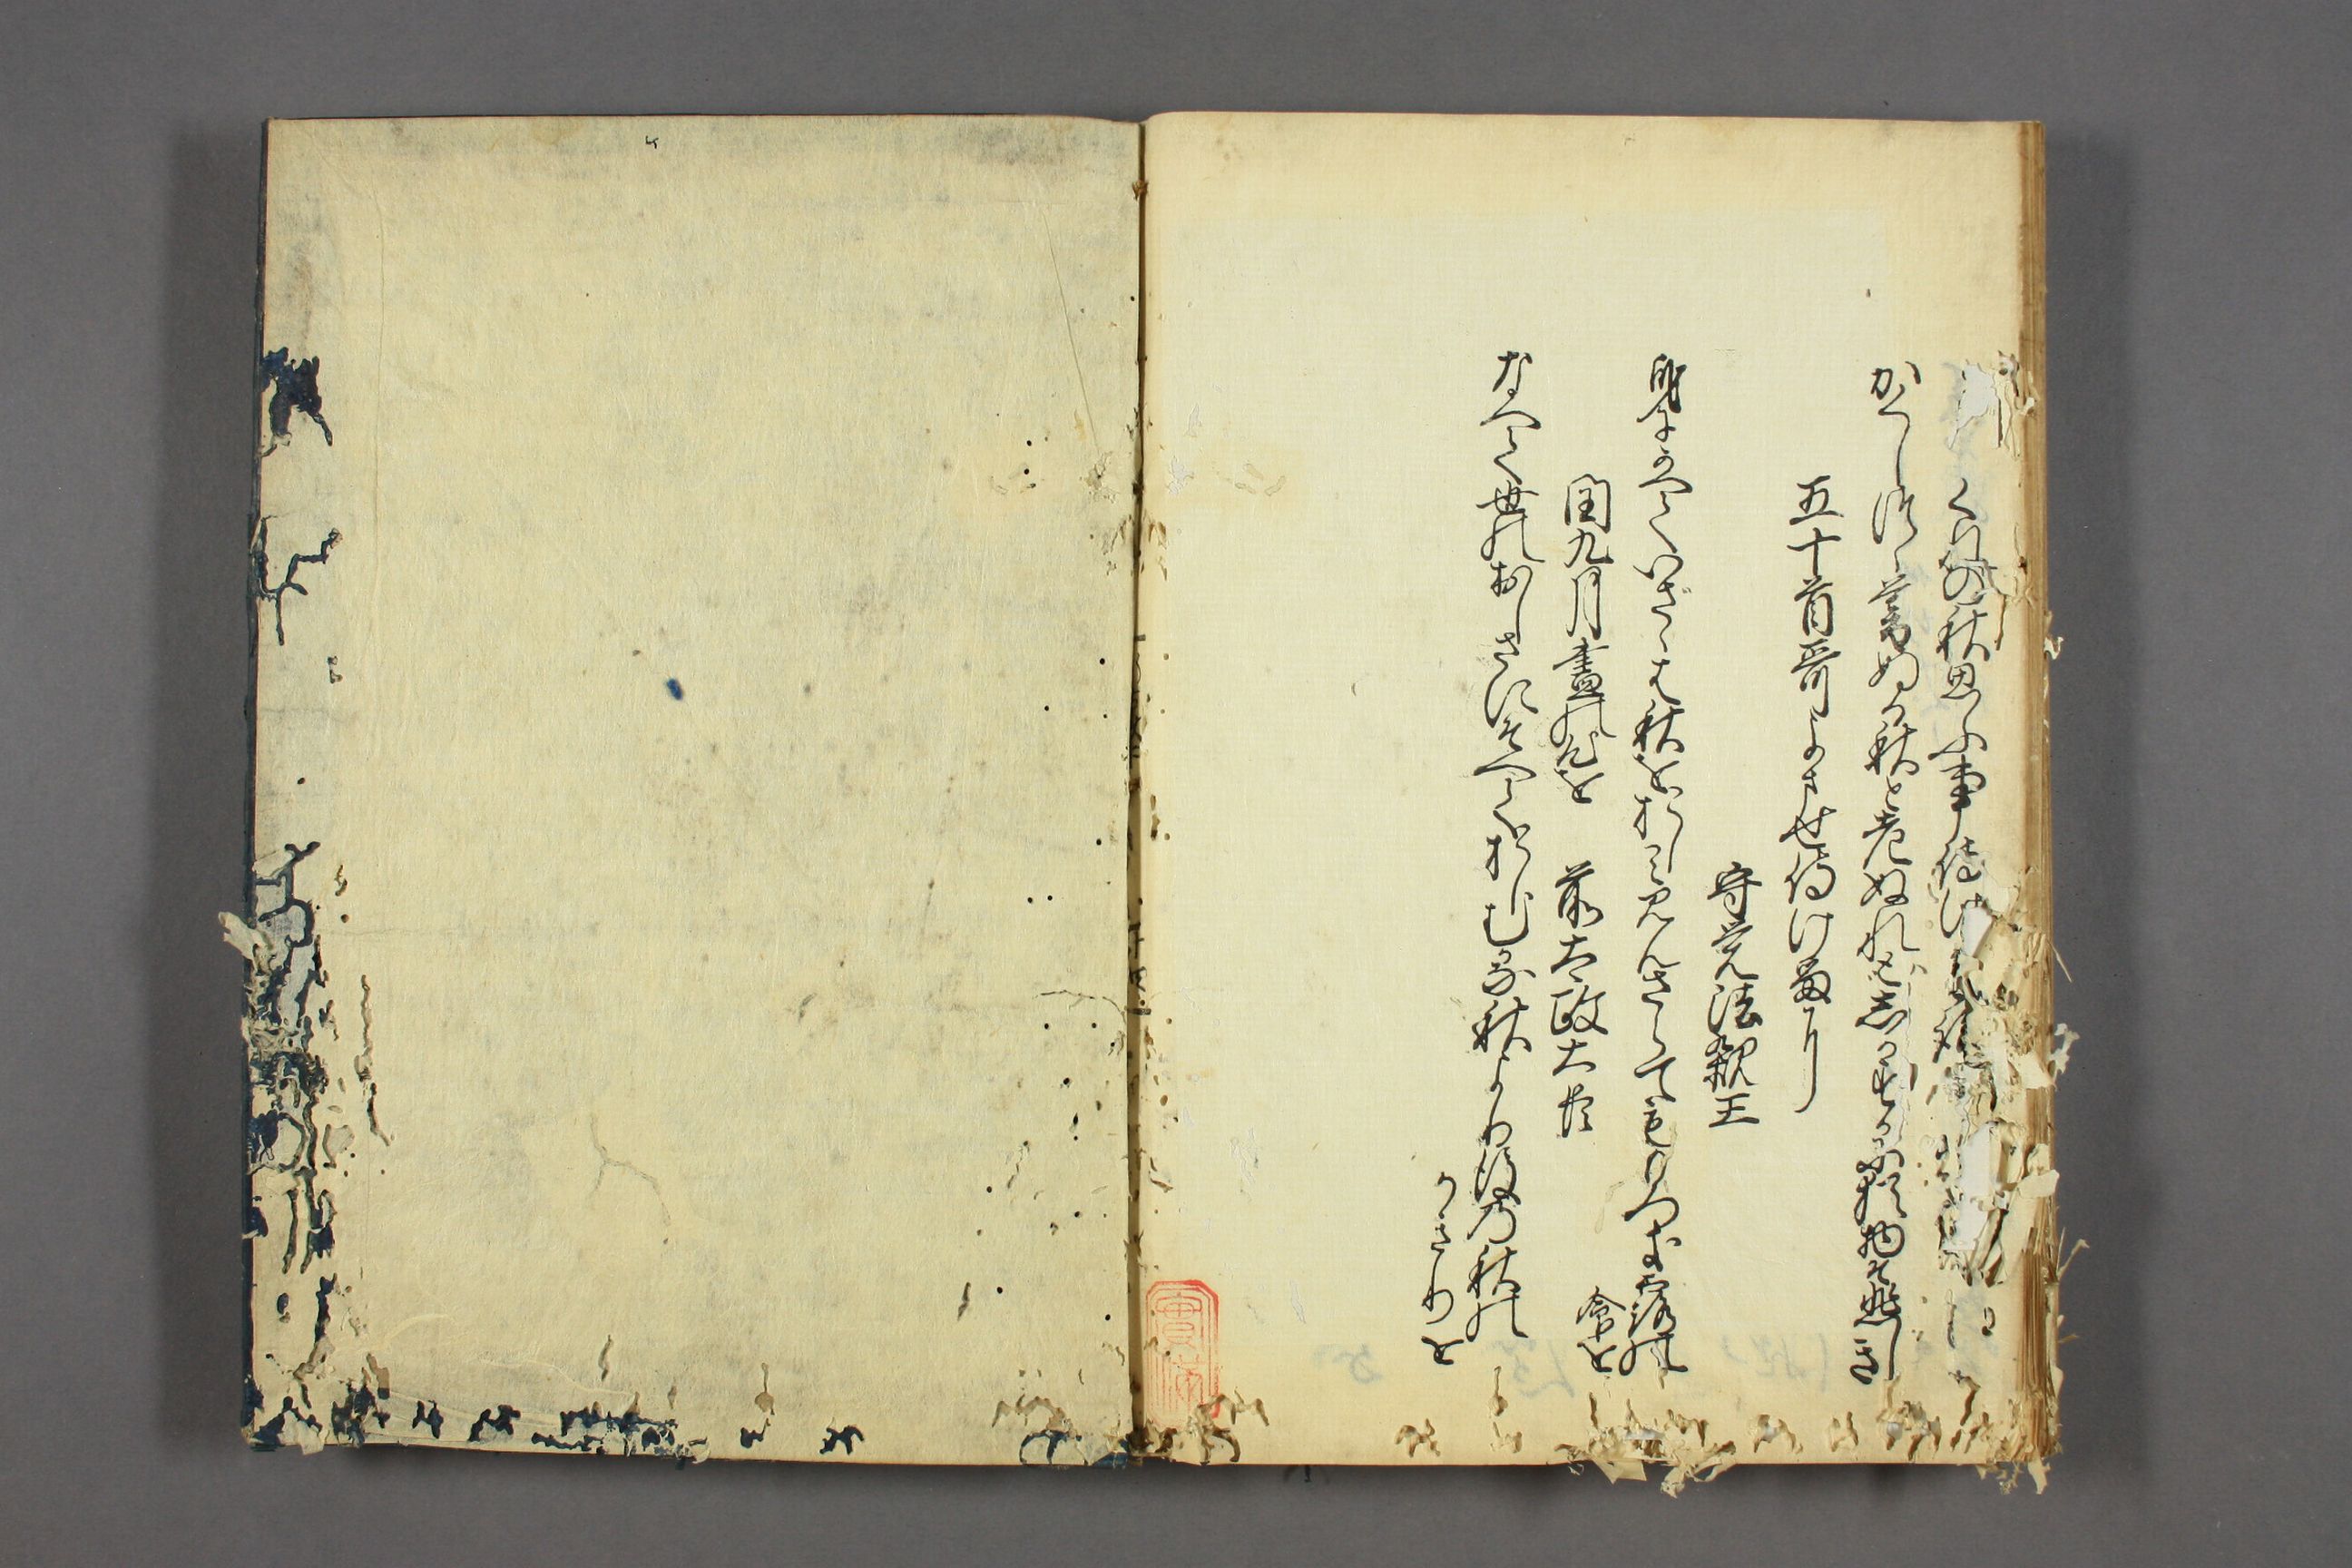 くれの秋思ふ事侍ける
かくしつゝ暮ぬる秋と老ぬれどしかすかに猶物そ悲しき
五十首哥よませ侍けるに
守覚法親王
身にかへていざゝは秋をおしみ見んさらてももろき露の
命を
閏九月盡の心を　前太政大臣
なへて世のおしさにそへておしむ哉秋より後の秋の
かきりを